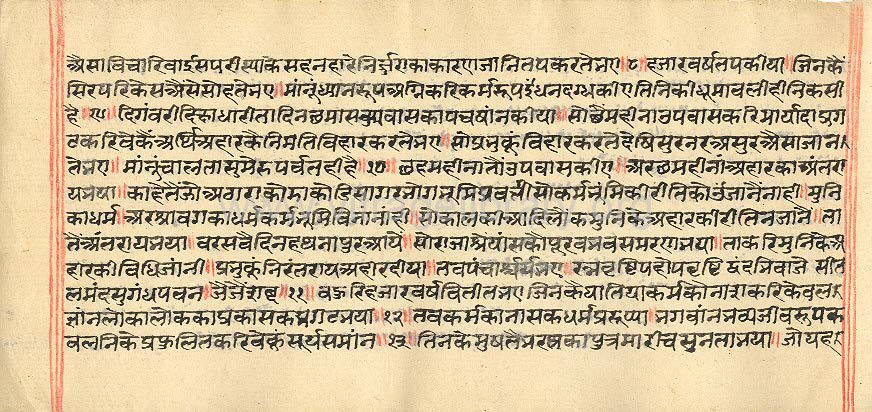 अैसा विचारि वाईस परीस्याके सहनहारे निर्ज्जराका कारण जानि तप करते भए ॥ ८ ॥ हजार वर्ष तप कीया जिनकै
सिर परि केस अैसे सोहते भए ॥ मांनुं ध्यान रूप अग्नि करि कर्म रूप ईंधन दग्ध कीए तिनिकी धूमावली ही निकसी
है ॥ ९ ॥ दिगंवरी दिक्षा धारी ता दिन छमासका उपवासका पचषांन कीया ॥ सो छै महीना उपवास करि मार्यादा प्रग
ट करिवेकैं अर्थि अहारकै निमति विहार करते भए ॥ सो प्रभुकूं विहार करते देषि सुर नर अर असुर अैसा जान
ते भए ॥ मांनुं चालता सुमेरु पर्वत ही है ॥ १० ॥ छह महीना तौ उपवास कीए ॥ अर छ महीनां अहारका अंतरा
य भया ॥ काहेतैं जो अठारा कोडा कोडि सागर भोगभूमि प्रवर्त्ती सो कर्मभूमिकी रीति कोउ जांनै नाही ॥ मुनि
का धर्म अर श्रावगका धर्म कर्मभूमि विनां नांही ॥ सो कालकी आदि लोक मुनिकै अहारकी रीति न जानै ॥ ता
तैं अंतराय भया ॥ वरसवै दिन हथनापुर आये ॥ सो राजा श्रेयांसकौ पूरव भव समरण भया ॥ ता करि मुनिकै अ
हारकी विधि जांनी ॥ प्रभुकूं निरंतराय अहार दीया ॥ तव पंचाश्चर्य भए ॥ रत्नवृष्टि पहौपवृष्टि दुंदुभि वाजे सीत
ल मंद सुगंध पवन जैजै शब्द ॥ ११ ॥ वहुरि हजार वर्ष वितीत भए जिनकै घातिया कर्मकौ नाश करि केवल
ज्ञांन लोकालोकका प्रकासक प्रगट भया ॥ १२ ॥ तव कर्मका नासक धर्म प्ररूप्या ॥ भगवांन भव्यजीव रूप क
वलनिके प्रफुलित करिवेकूं सूर्य समांन ॥ १३ ॥ तिनकै मुषतै भरतका पुत्र मारीच सुनता भया ॥ जो यह